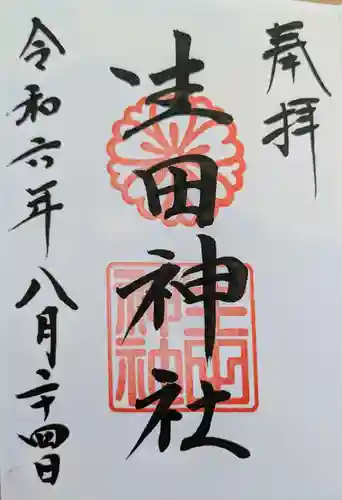 奉拝
生田神社
生田神社
令和六年八月二十四日